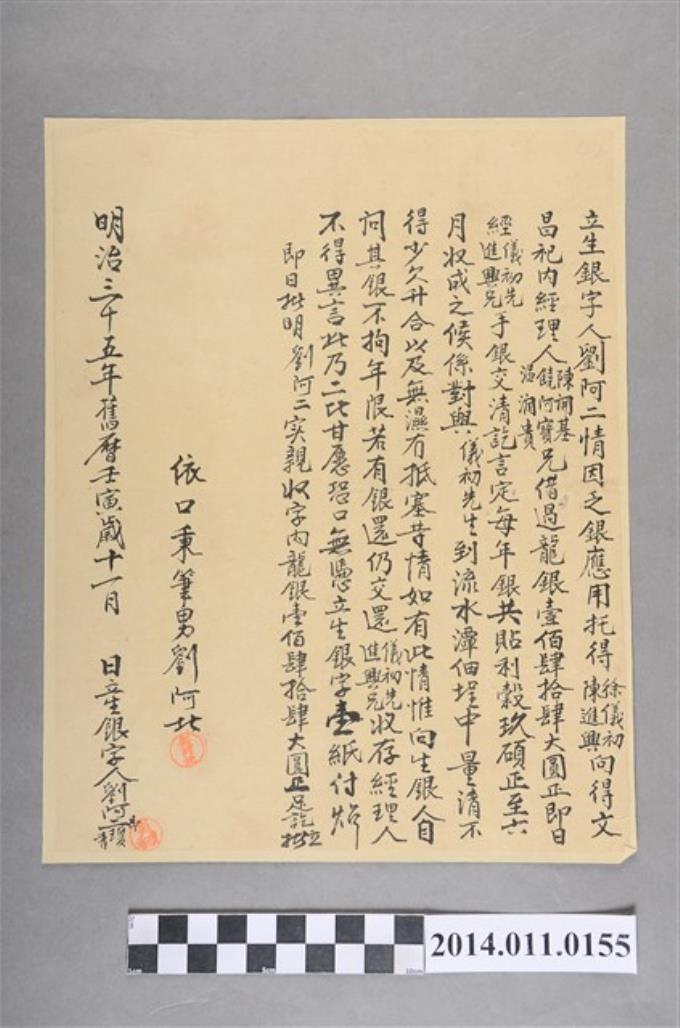 立生銀字人劉阿二情因乏銀應用托得徐儀初陳進興向得文
昌祀內經理人陳桐基饒阿寶溫潤貴兄借過龍銀壹佰肆拾肆大圓正即日
經儀初先進興兄手銀交清訖言定每年銀共貼利穀玖碩正至六
月收成之候係對與儀初先生到流水潭佃埕中量清不
得少欠升合以及無濕冇抵塞等情如有此情惟向生銀人自
问其銀不拘年限若有銀還仍交還儀初先進興兄收存經理人
不得異言此乃二比甘愿恐口無憑立生銀字壹紙付炤
即日批明劉阿二实親收字內龍銀壹佰肆拾肆大圓正足訖立批
依口秉筆男劉阿北
明治三十五年舊曆壬寅歲十一月 日立生銀字人劉阿二
2014.011.0155